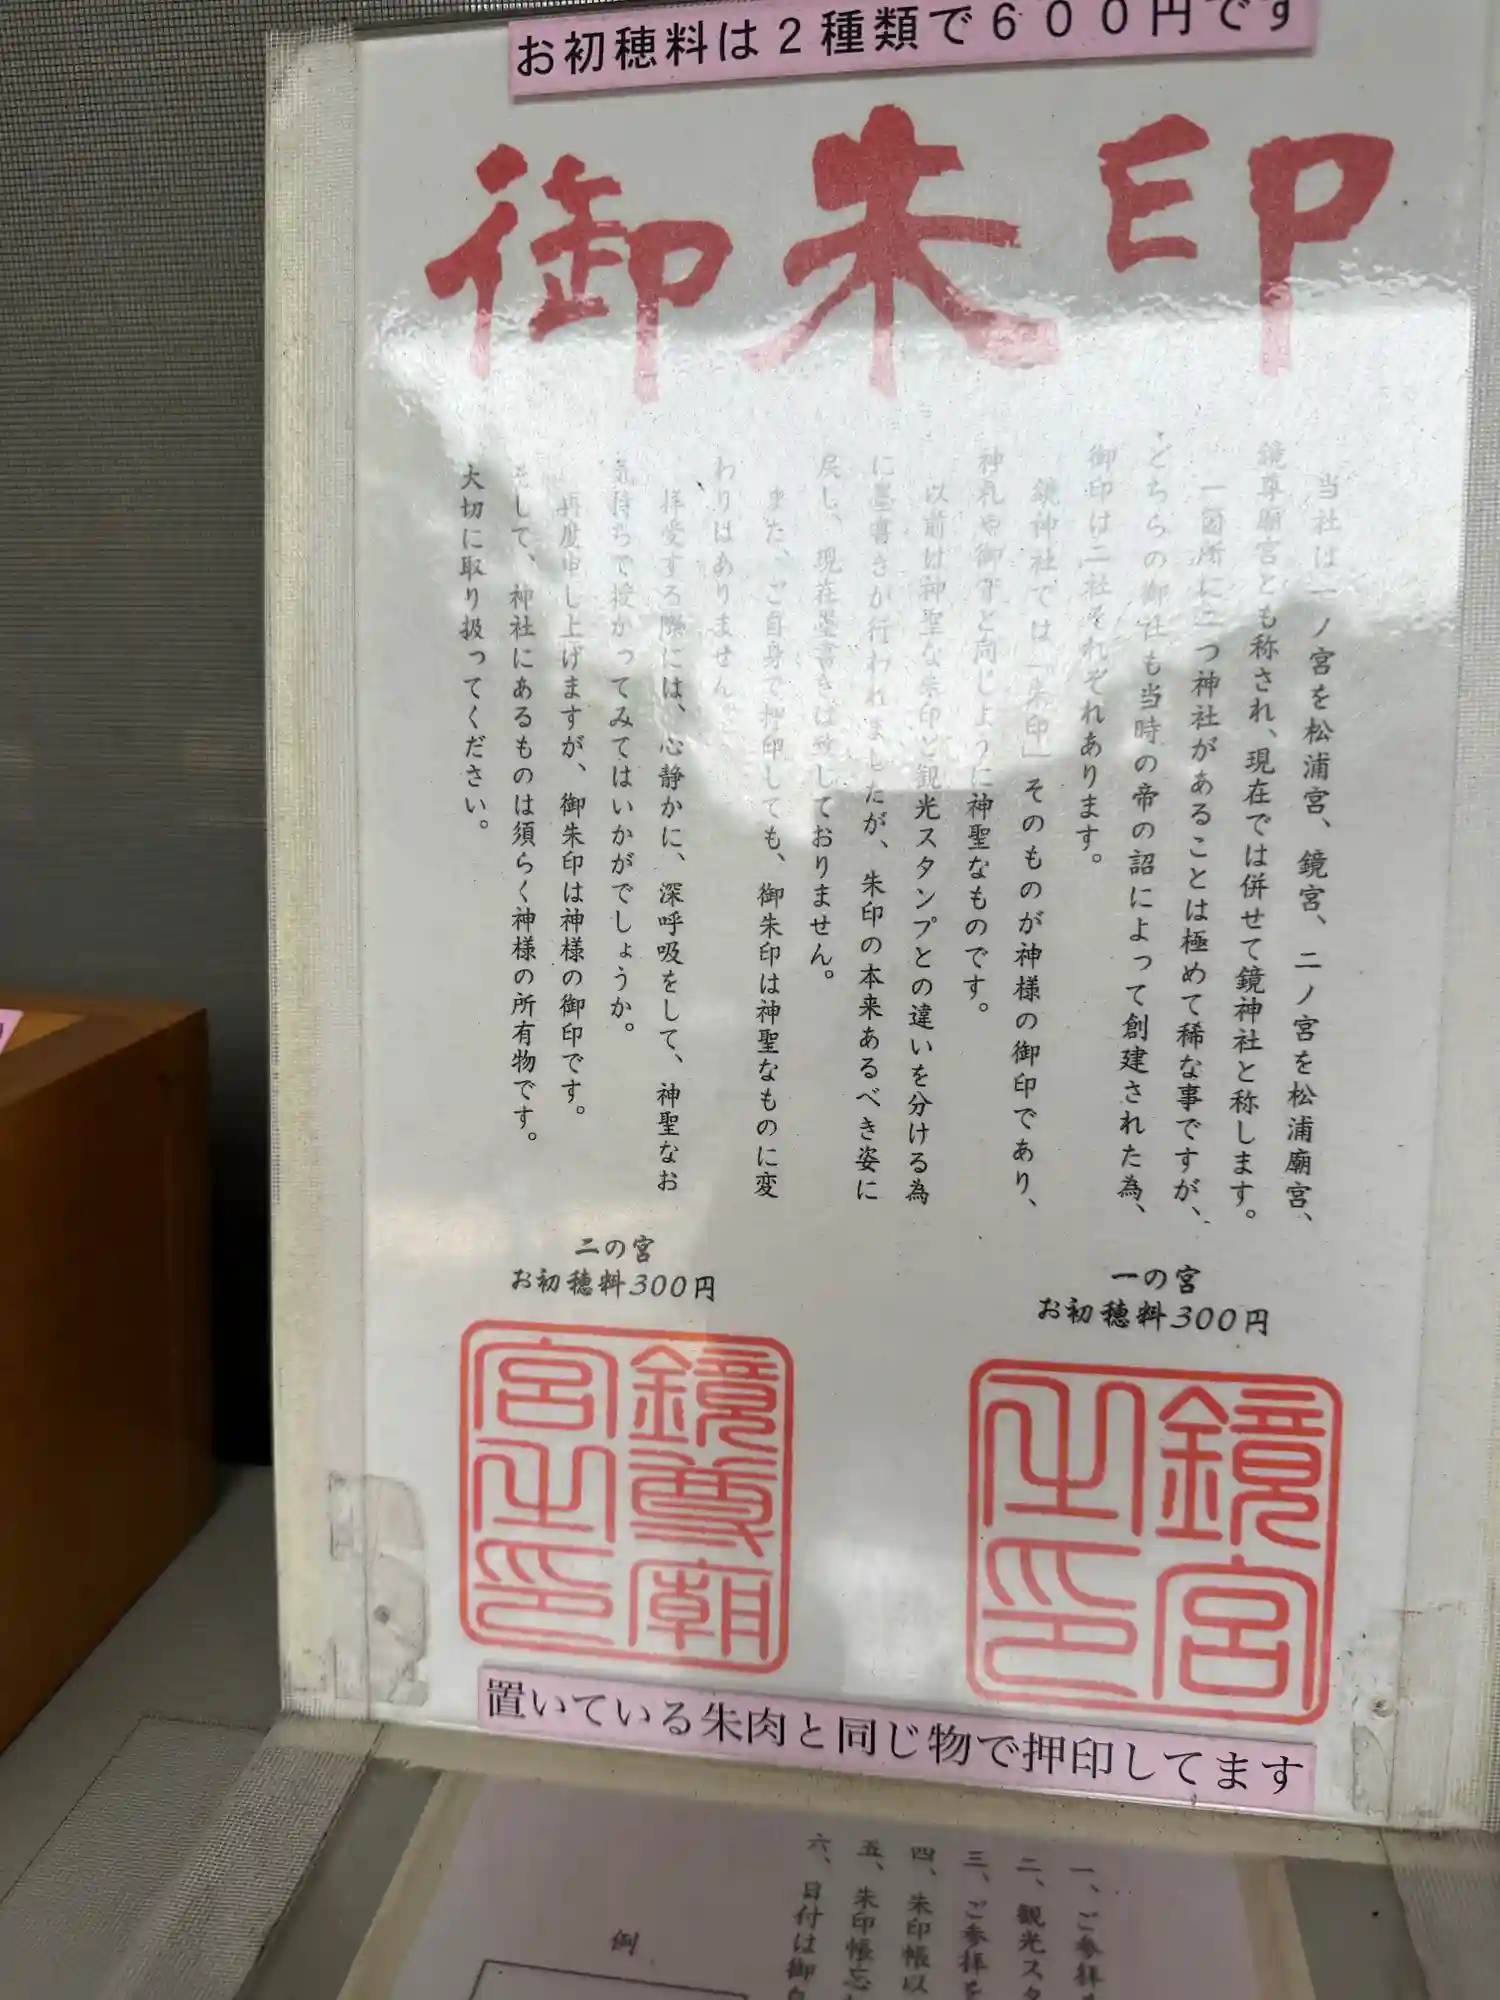 お初穂料は２種類で６００円です
御朱印
当社は一ノ宮を松浦宮、鏡宮、二ノ宮を松浦廟宮、
鏡尊廟宮とも称され、現在では併せて鏡神社と称します。
一箇所に二つ神社があることは極めて稀な事ですが、
どちらの御社も当時の帝の詔によって創建された為、
御印は二社それぞれあります。
鏡神社では「朱印」そのものが神様の御印であり、
神札や御守と同じように神聖なものです。
以前は神聖な朱印と観光スタンプとの違いを分ける為
に墨書きが行われましたが、朱印の本来あるべき姿に
戻し、現在墨書きは致しておりません。
また、ご自身で押印しても、御朱印は神聖なものに変
わりはありません。
拝受する際には、心静かに、深呼吸をして、神聖なお
気持ちで授かってみてはいかがでしょうか。
再度申し上げますが、御朱印は神様の御印です。
そして、神社にあるものは須らく神様の所有物です。
大切に取り扱ってください。
一の宮
お初穂料300円
鏡宮之印
二の宮
お初穂料300円
鏡尊廟宮之印
置いている朱肉と同じ物で押印してます
一、ご参拝
二、観光スタ
三、ご参拝を
四、朱印帳以
五、朱印帳忘
六、日付は御
例